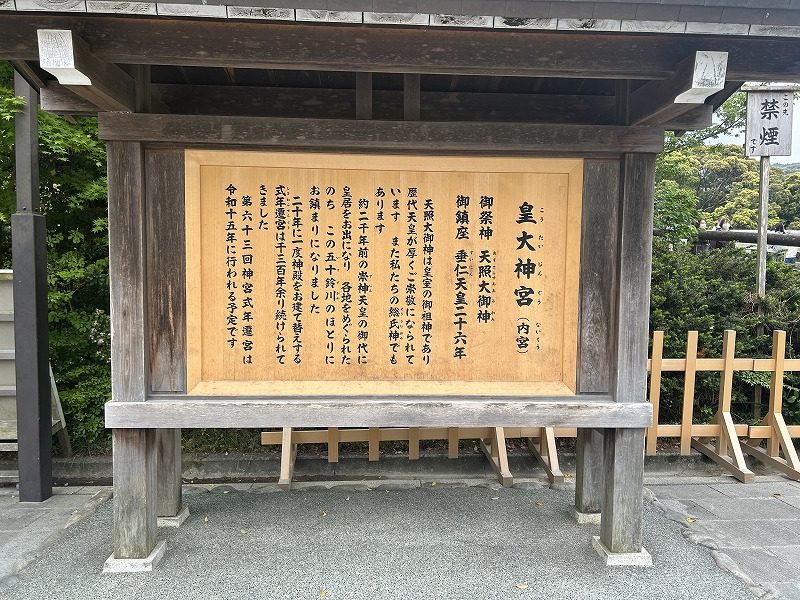 皇大神宮（内宮）
こうたいじんぐう　ないくう
御祭神　天照大御神
あまてらすおおみかみ
御鎮座　垂仁天皇二十六年
すいにん
天照大御神は皇室の御祖神であり
歴代天皇が厚くご崇敬になられて
います　また私たちの総氏神でも
あります
約二千年前の崇神天皇の御代に
皇居をお出になり　各地をめぐられた
のち　この五十鈴川のほとりに
お鎮まりになりました
二十年に一度神殿をお建て替えする
式年遷宮は千三百年余り続けられて
きました
第六十三回神宮式年遷宮は
令和十五年に行われる予定です
この先
禁煙
です